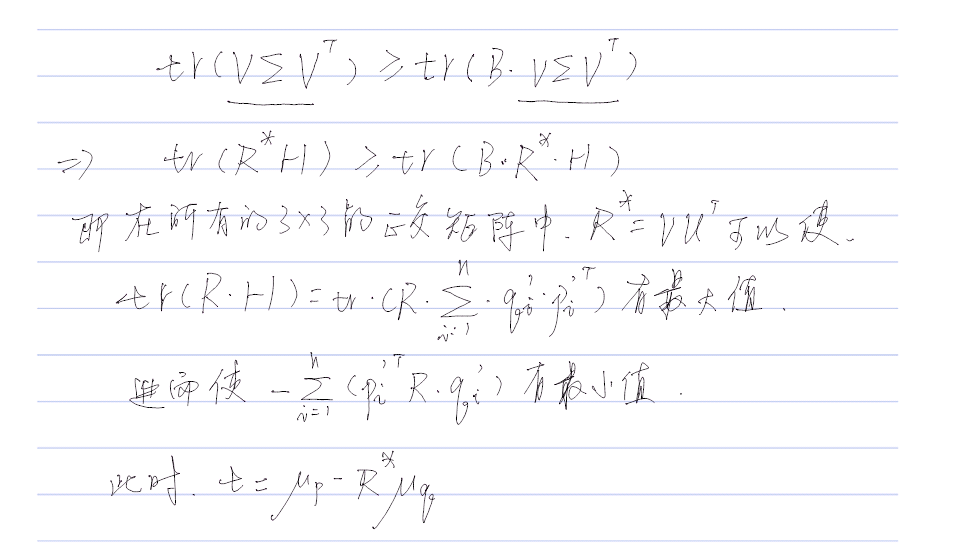 tr(VΣV^T) ≥ tr(B·VΣV^T)
⇒ tr(R^*H) ≥ tr(B·R^*·H)
即在所有的3×3的正交矩阵中. R^*=VU^T可以使.
tr(R·H)=tr·(R·∑_{i=1}^{n}·q_i'·p_i'^T) 有最大值.
进而使 -∑_{i=1}^{n}(p_i'^T R·q_i') 有最小值.
此时. t=μ_p-R^*μ_q